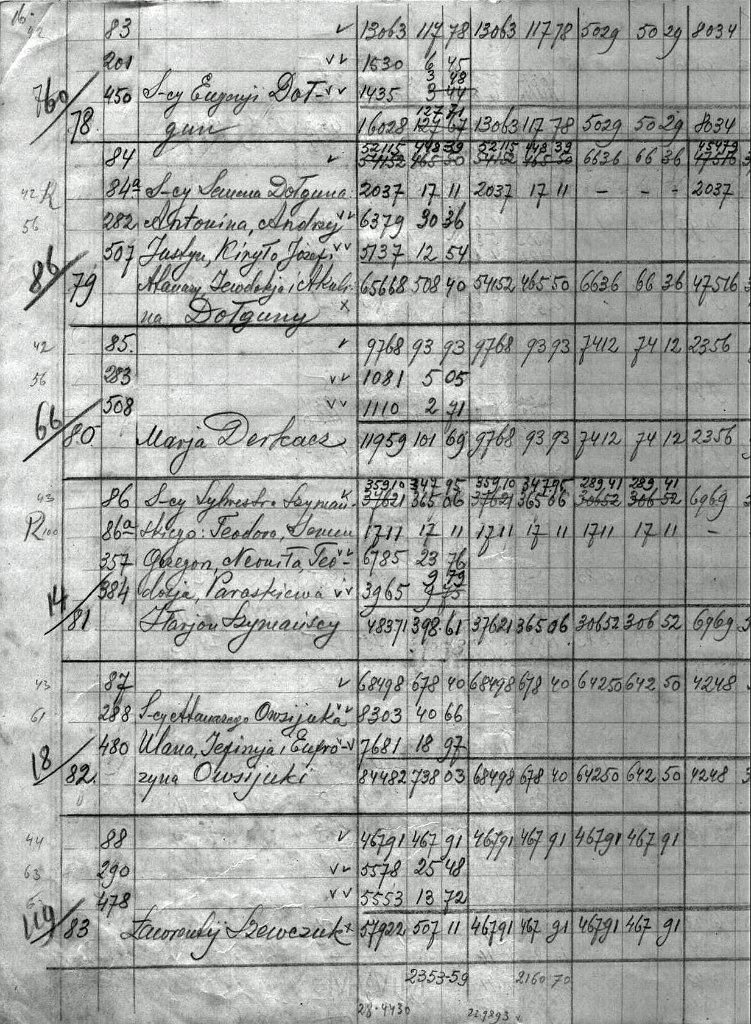 16.
42 83 v 13063 117 78 13063 117 78 5029 50 29 8034
201 v v 1530 6 45
3 48
760 450 S-cy Eugenji Doł- v v 1435 3 44
127 71
78 gun 16028 127 67 13063 117 78 5029 50 29 8034
52115 448 39 52115 448 39 45479
84 v 54152 465 50 54152 465 50 6636 66 36 47516
42 R 84a S-cy Semena Dołguna 2037 17 11 2037 17 11 - - - 2037
56 282 Antonina, Andrzej v v 6379 30 36
507 Justyn, Kiryło, Józef i v v 5137 12 54
86 79 Atanazy, Jewdokja i Akuli- 65668 508 40 54152 465 50 6636 66 36 47516
na Dołguny x
42 85. v 9768 93 93 9768 93 93 7412 74 12 2356
56 283 v v 1081 5 05
508 v v 1110 2 71
66 80 Marja Derkacz 11959 101 69 9768 93 93 7412 74 12 2356
35910 347 95 35910 347 95 28941 289 41
43 86 S-cy Sylwestra Szymań- 37621 365 06 37621 365 06 30652 306 52 6969
R 100 86a skiego: Teodora, Semen 1711 17 11 1711 17 11 1711 17 11 -
357 Grzegon, Neonita, Teo- v v 6785 23 76
9 79
384 dosja, Paraskiewa v v 3965 9 75
14 81 Harjon Szymańscy 48371 398 61 37621 365 06 30652 306 52 6969
43 87 v 68498 678 40 68498 678 40 64250 642 50 4248
61 288 S-cy Atanazego Owsijuka v v 8303 40 66
480 Ulana, Jefimja i Eufro- v v 7681 18 97
18 82. zyna Owsijuki 84482 738 03 68498 678 40 64250 642 50 4248
44 88 v 46791 467 91 46791 467 91 46791 467 91
63 290 v v 5578 25 48
478 v v 5553 13 72
119 83 Ławrentij Szewczuk x 57922 507 11 46791 467 91 46791 467 91
2353-59 2160 70